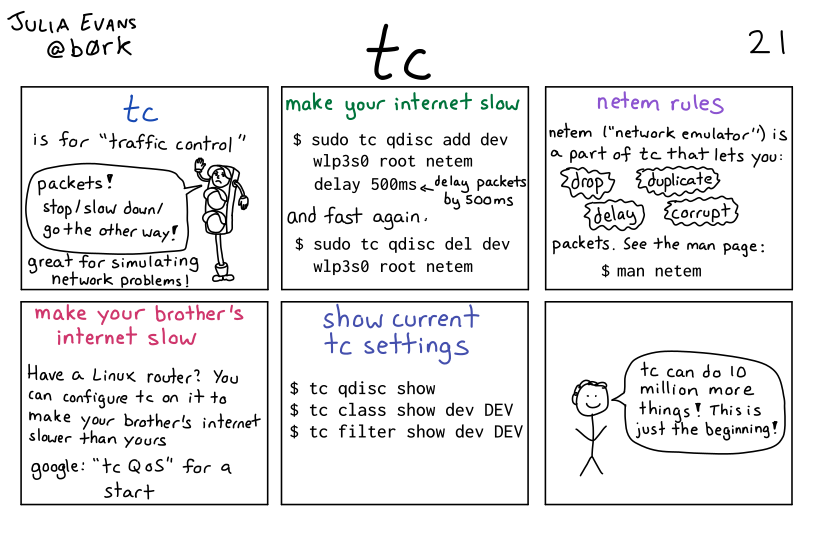 JULIA EVANS
@b0rk
tc
21
tc
is for "traffic control"
packets!
stop/slow down/
go the other way!
great for simulating
network problems!
make your internet slow
$ sudo tc qdisc add dev
wlp3s0 root netem
delay 500ms ← delay packets
by 500ms
and fast again.
$ sudo tc qdisc del dev
wlp3s0 root netem
netem rules
netem ("network emulator") is
a part of tc that lets you:
drop duplicate
delay corrupt
packets. See the man page:
$ man netem
make your brother's
internet slow
Have a Linux router? You
can configure tc on it to
make your brother's internet
slower than yours
google: "tc QoS" for a
start
show current
tc settings
$ tc qdisc show
$ tc class show dev DEV
$ tc filter show dev DEV
tc can do 10
million more
things! This is
just the beginning!